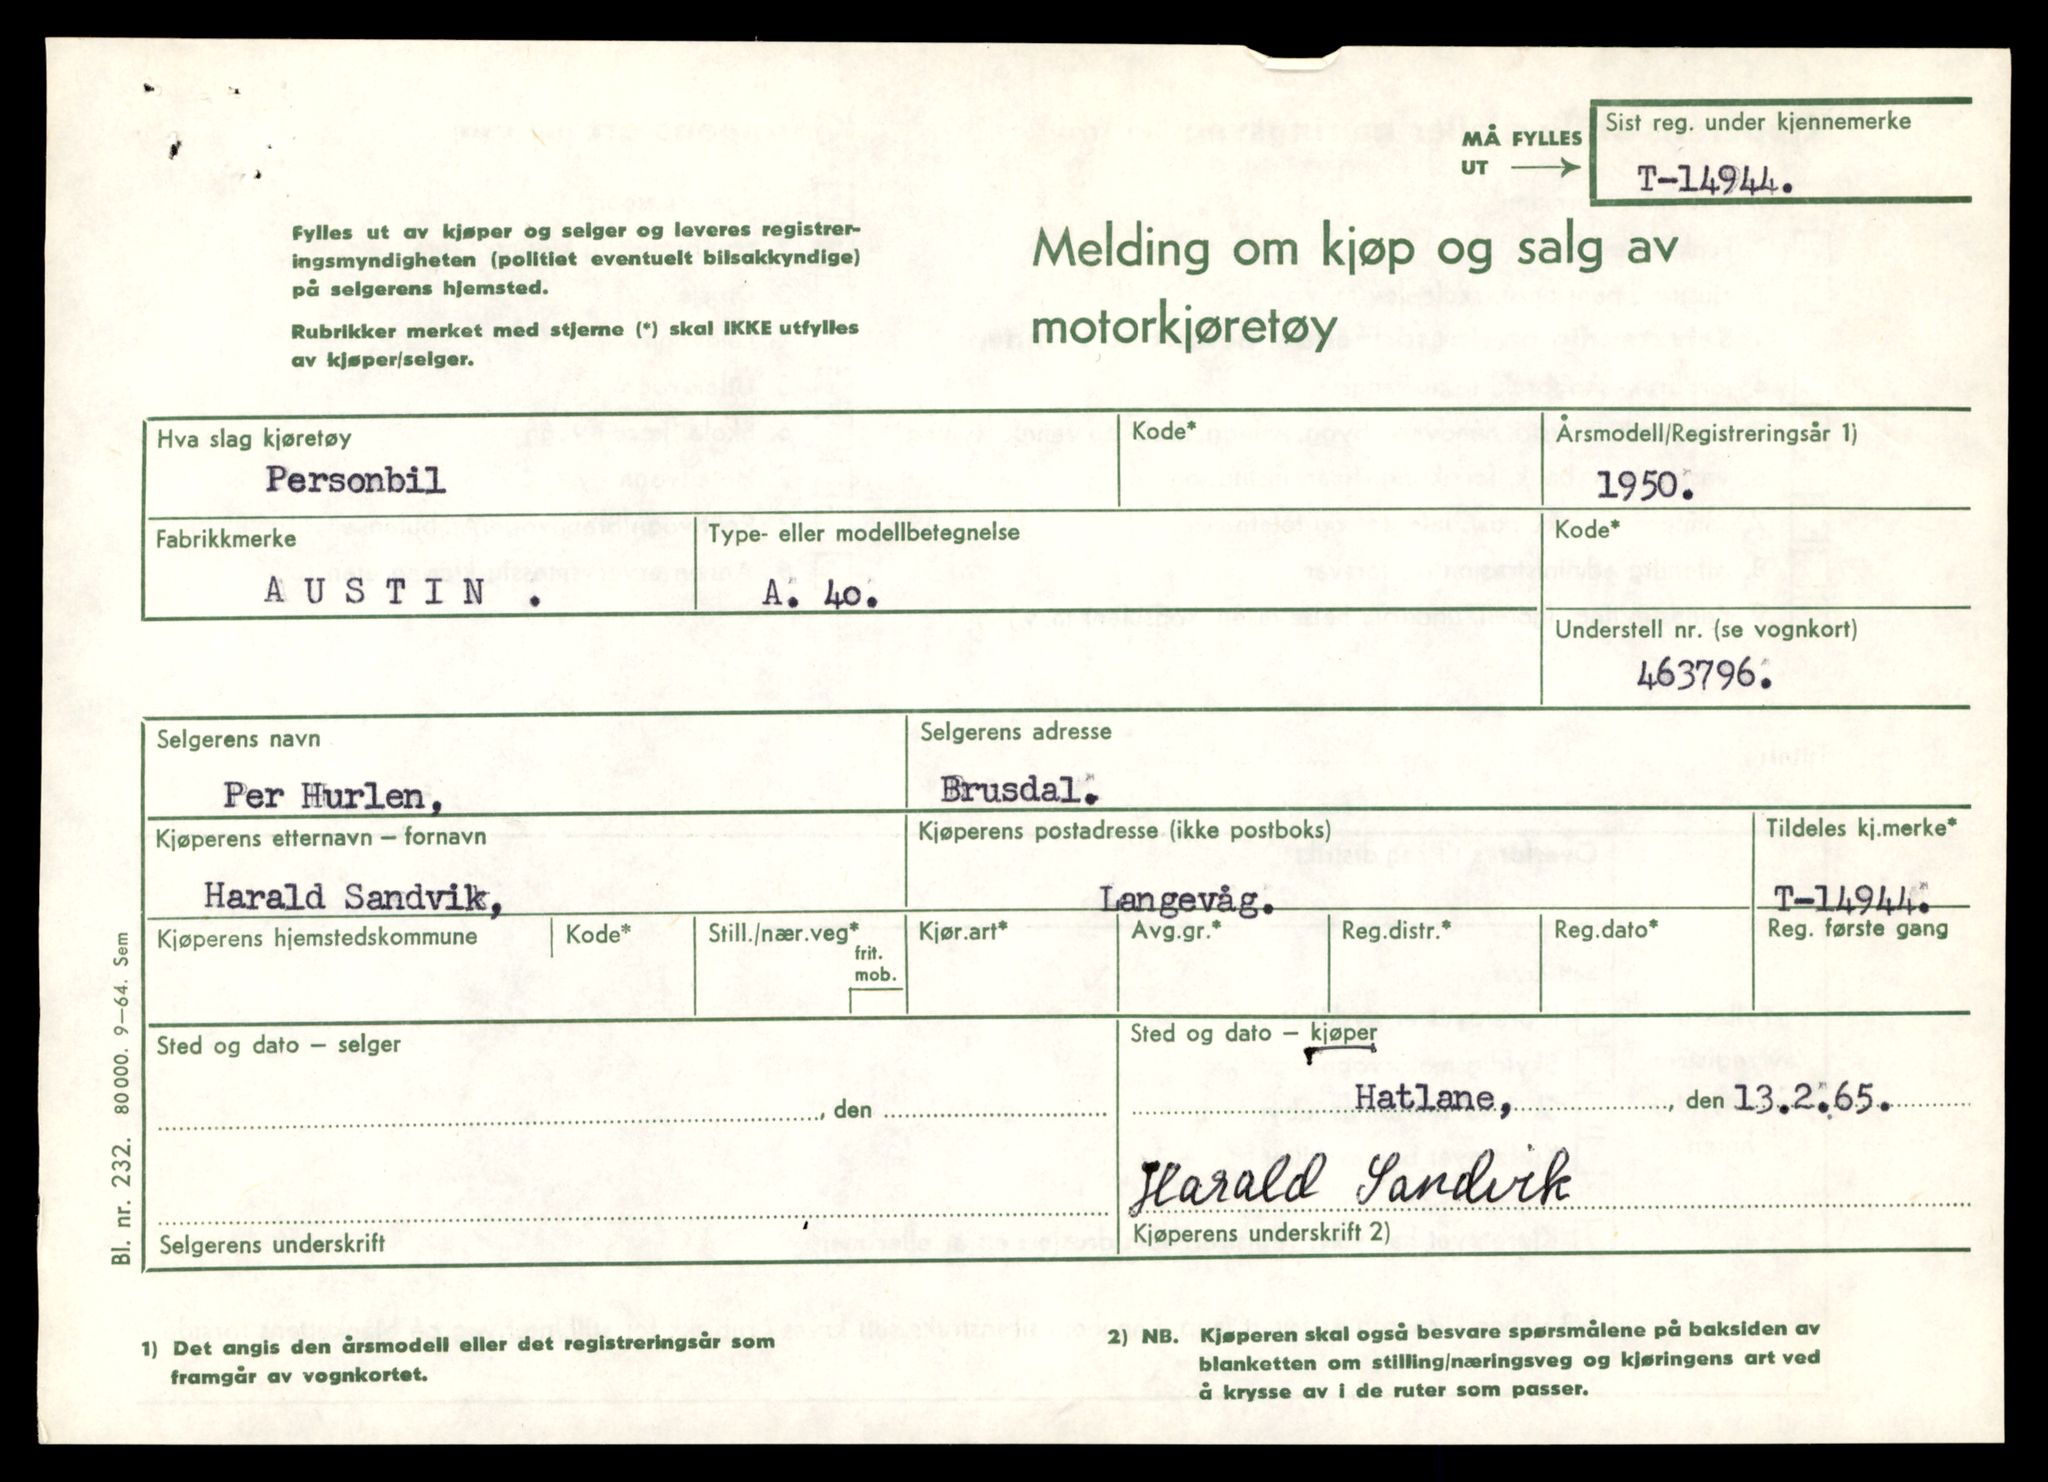 MÅ FYLLES
UT
Sist reg. under kjennemerke
T-14944.
Fylles ut av kjøper og selger og leveres registrer-
ingsmyndigheten (politiet eventuelt bilsakkyndige)
på selgerens hjemsted.
Rubrikker merket med stjerne (*) skal IKKE utfylles
av kjøper/selger.
Melding om kjøp og salg av
motorkjøretøy
Hva slag kjøretøy
Personbil
Kode*
Årsmodell/Registreringsår 1)
1950.
Fabrikkmerke
A U S T I N .
Type- eller modellbetegnelse
A. 40.
Kode*
Understell nr. (se vognkort)
463796.
Selgerens navn
Per Hurlen,
Selgerens adresse
Brusdal.
Kjøperens etternavn – fornavn
Harald Sandvik,
Kjøperens postadresse (ikke postboks)
Langevåg.
Tildeles kj.merke*
T-14944.
Kjøperens hjemstedskommune
Kode*
Still./nær.veg*
frit.
mob.
Kjør.art*
Avg.gr.*
Reg.distr.*
Reg.dato*
Reg. første gang
Sted og dato – selger
, den
Selgerens underskrift
Sted og dato – kjøper
Hatlane, , den 13.2.65.
Harald Sandvik
Kjøperens underskrift 2)
Bl. nr. 232. 80000. 9–64. Sem
1) Det angis den årsmodell eller det registreringsår som
framgår av vognkortet.
2) NB. Kjøperen skal også besvare spørsmålene på baksiden av
blanketten om stilling/næringsveg og kjøringens art ved
å krysse av i de ruter som passer.